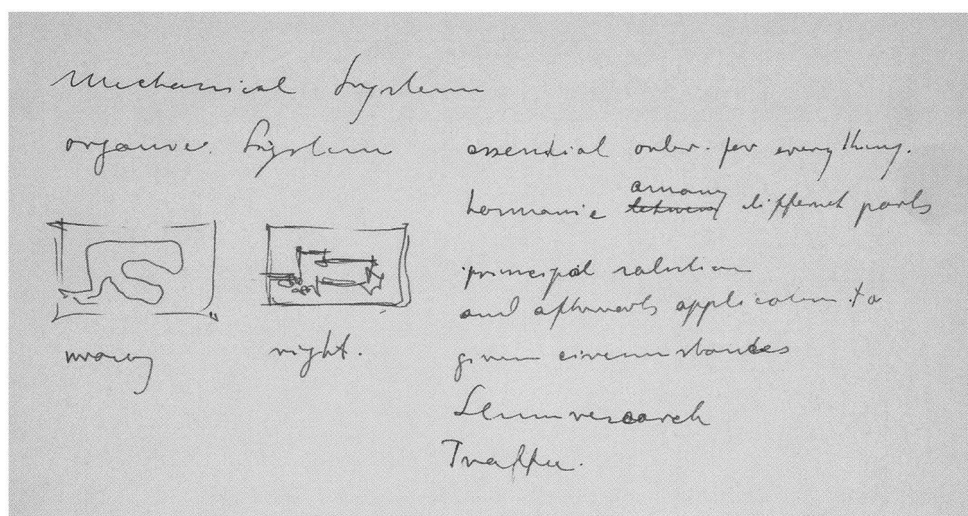 Mechanical System
organic System
wrong
right.
essential order for everything.
harmonie among different parts
principal solution
and afterwards application to
given circumstances
Slumresearch
Traffic.